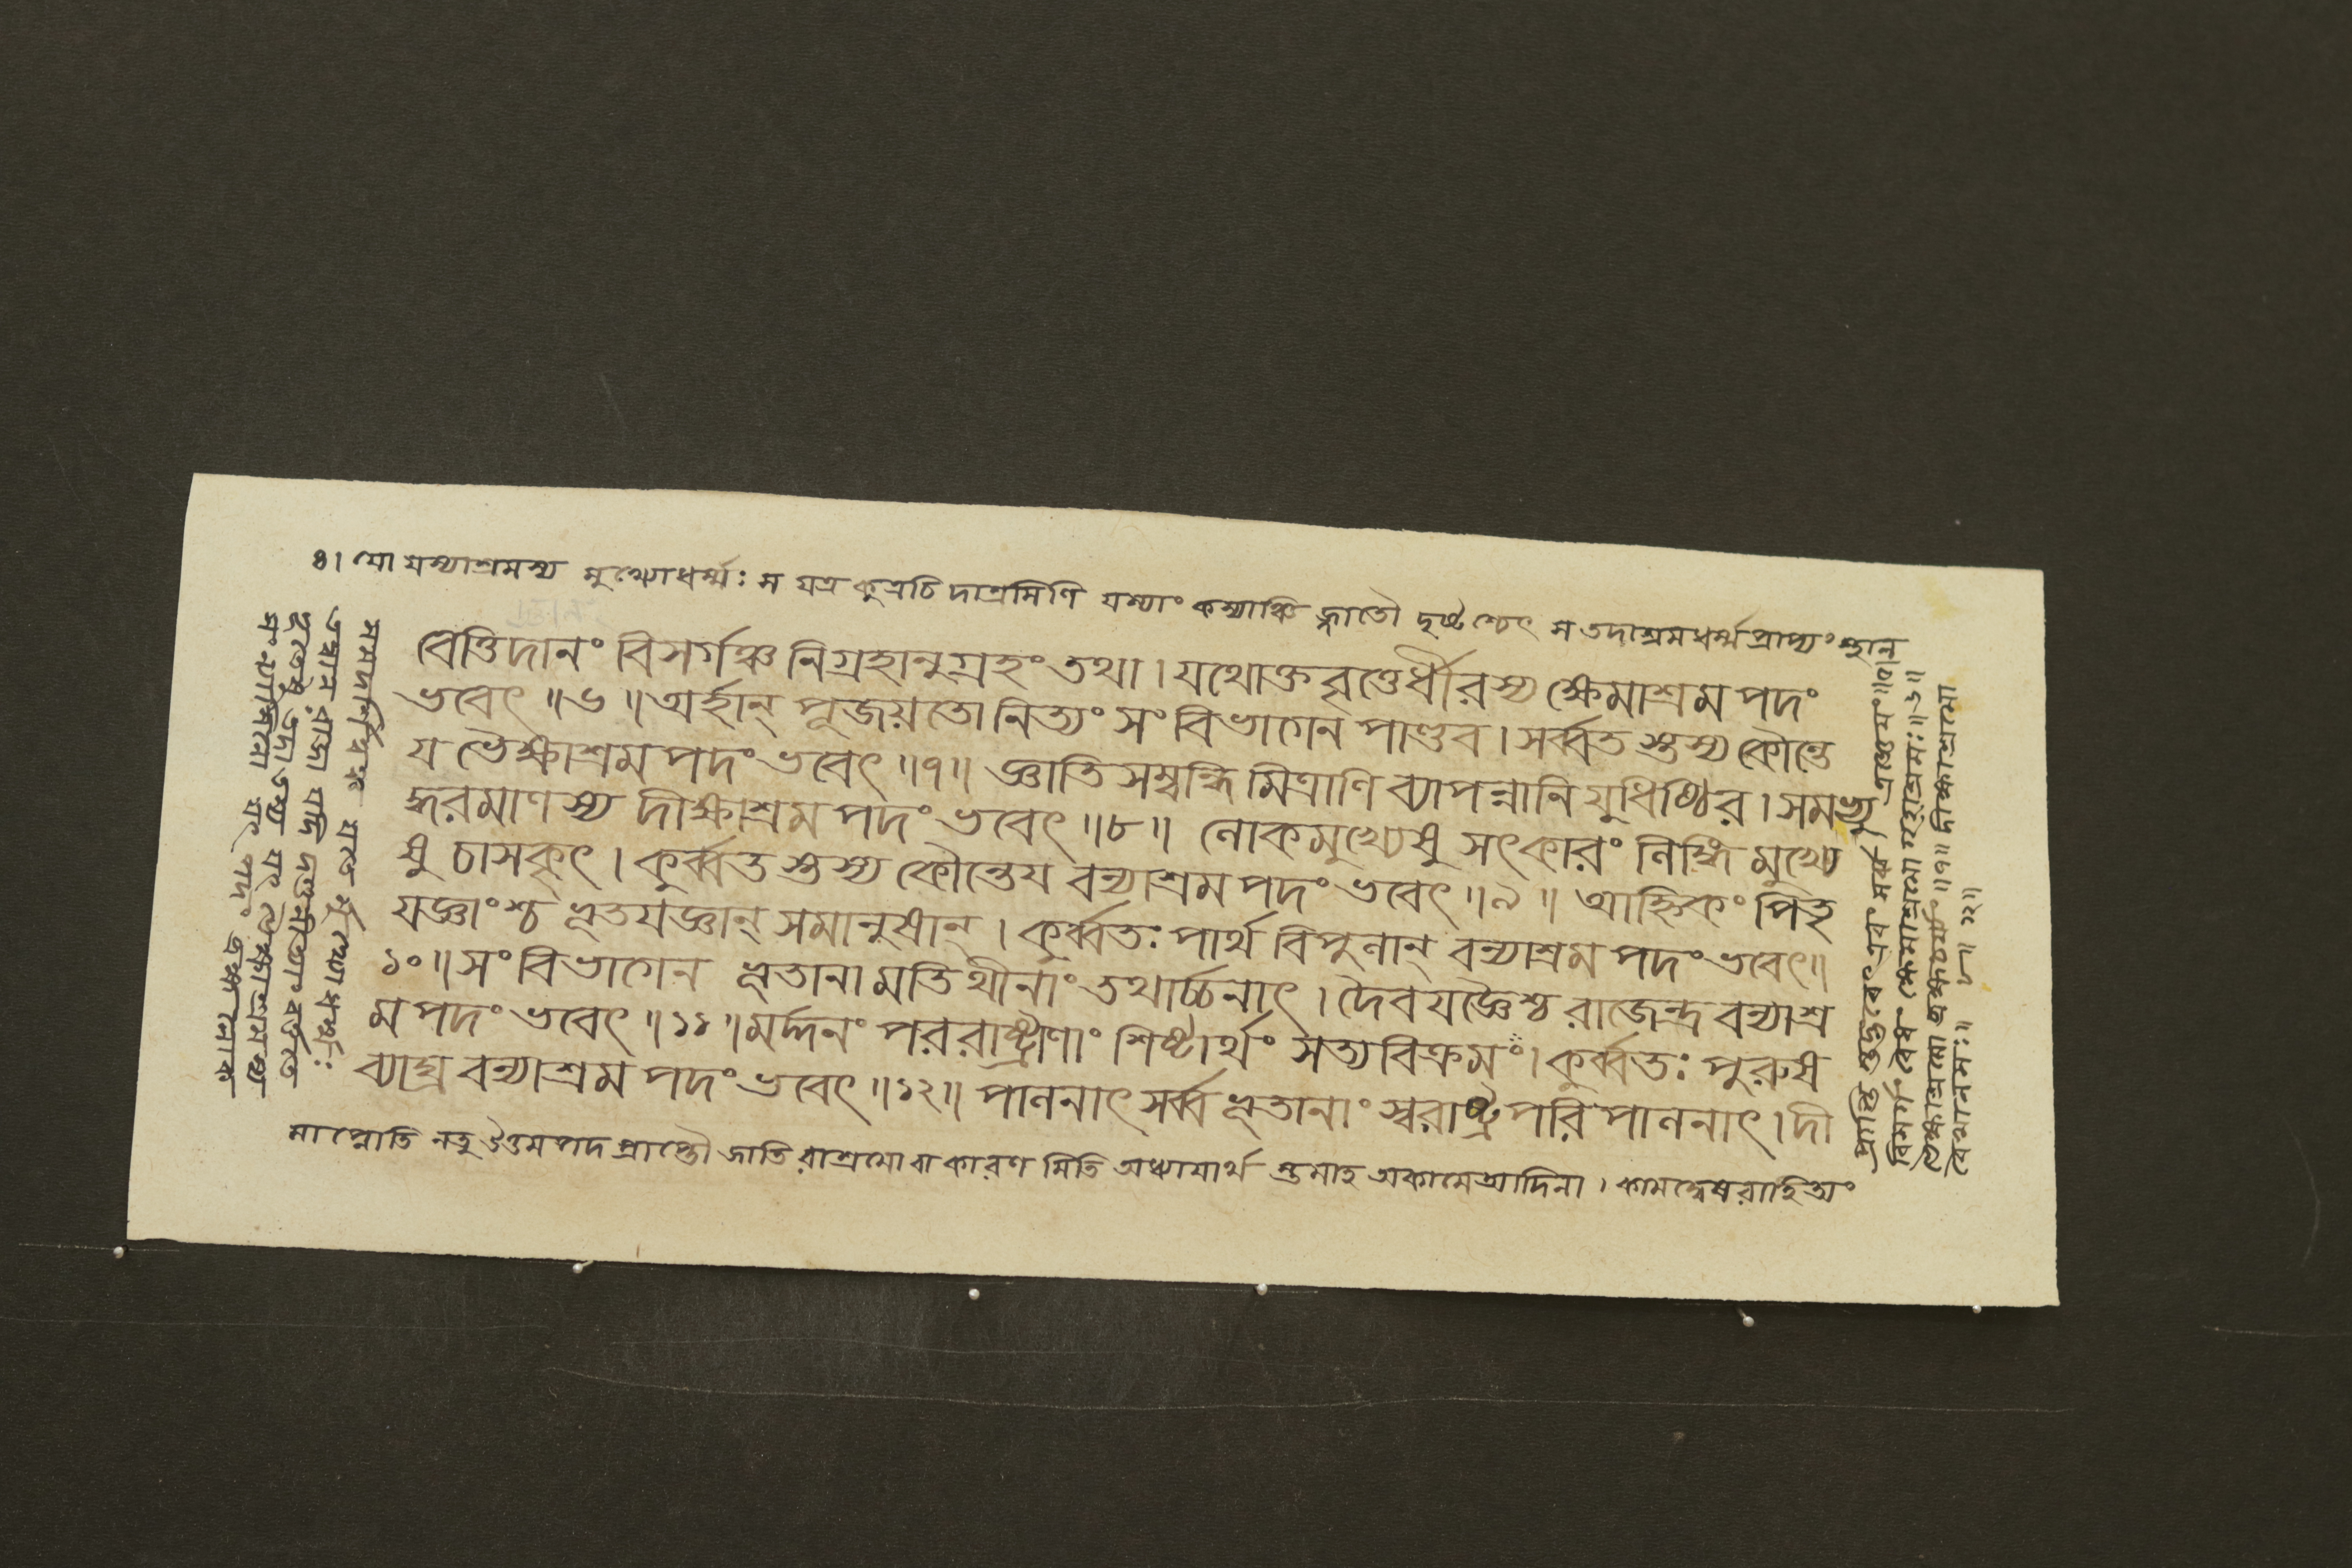 ৪। যো যস্যাশ্রমস্য মুখ্যোধর্ম্মঃ স যত্র কুত্রচি দাশ্রমিণি যস্যাং কস্যাঞ্চি জ্জাতৌ দৃষ্টশ্চেৎ স তদাশ্রমধর্ম্মপ্রাপ্যং স্থান
বেত্তিদানং বিসর্গঞ্চ নিগ্রহানুগ্রহং তথা। যথোক্তবৃত্তের্ধীরস্য ক্ষেমাশ্রম পদং
ভবেৎ॥৬॥ অর্হান্ পূজয়তো নিত্যং সংবিভাগেন পাণ্ডব। সর্ব্বতস্তস্য কৌন্তে
য ভৈক্ষাশ্রম পদং ভবেৎ॥৭॥ জ্ঞাতি সম্বন্ধি মিত্রাণি ব্যাপন্নানি যুধিষ্ঠির। সমভ্যু
দ্ধরমাণস্য দীক্ষাশ্রম পদং ভবেৎ॥৮॥ লোকমুখ্যেষু সৎকারং লিঙ্গি মুখ্যে
ষু চাসকৃৎ। কুর্ব্বতস্তস্য কৌন্তেয বন্যাশ্রম পদং ভবেৎ॥৯॥ আহ্নিকং পিতৃ
যজ্ঞাংশ্চ ভূতযজ্ঞান্ সমানুষান্। কুর্ব্বতঃ পার্থ বিপুলান্ বন্যাশ্রম পদং ভবেৎ॥
১০॥ সংবিভাগেন ভূতানামতিথীনাং তথার্চ্চনাৎ। দৈবযজ্ঞৈশ্চ রাজেন্দ্র বন্যাশ্র
ম পদং ভবেৎ॥১১॥ মর্দ্দনং পররাষ্ট্রাণাং শিষ্টার্থং সত্যবিক্রমং। কুর্ব্বতঃ পুরুষ
ব্যাঘ্র বন্যাশ্রম পদং ভবেৎ॥১২॥ পালনাৎ সর্ব্ব ভূতানাং স্বরাষ্ট্র পরি পালনাৎ। দী
মাপ্নোতি নতু উত্তমপদ প্রাপ্তৌ জাতি রাশ্রমো বা কারণ মিতি অধ্যাযার্থ স্তমাহ অকামেত্যাদিনা। কামদ্বেষরাহিত্যং
সমদর্শিত্বঞ্চ যতে র্মুখ্যোধর্ম্মঃ
তদ্বান্ রাজা যদি দণ্ডনীত্যা বর্ত্ততে
ভূতেষু তদা তস্য যৎ ভৈক্ষাশ্রমস্থ
সংন্যাসিনো যৎ পদং ব্রহ্মলোক
প্রাপ্তি স্তদ্ভবেৎ এবং সর্ব্বত্র জ্ঞেযং॥৫॥
বিসর্গং ক্ষেমাশ্রমো গৃহাশ্রমঃ॥৬॥
ভৈক্ষাশ্রমো ব্রহ্মচর্য্যং॥৭॥ দীক্ষাশ্রমো
বৈখানসঃ॥৮॥ ১২॥